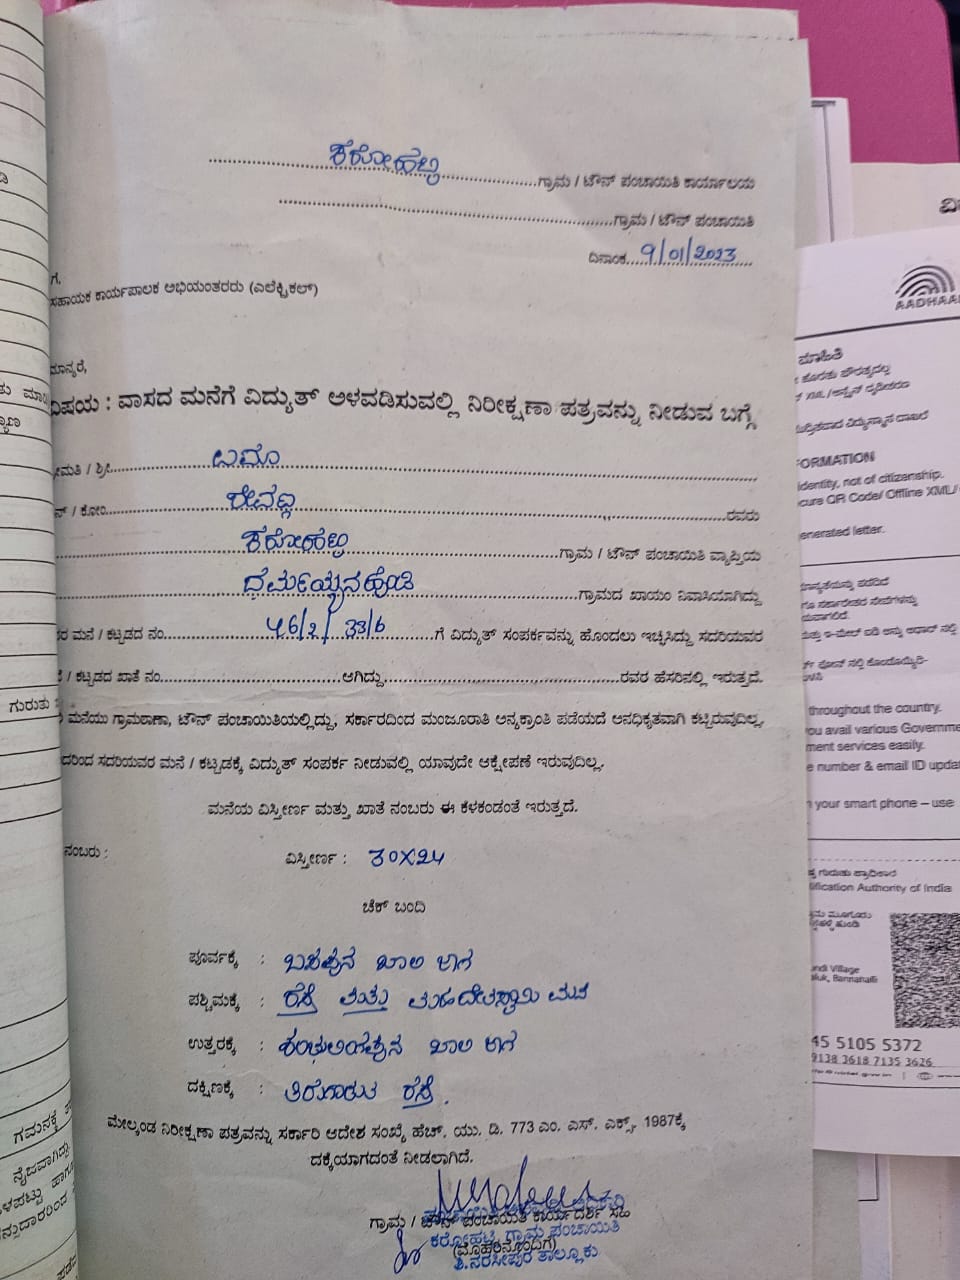 ಕರೋಹಟ್ಟಿ ಗ್ರಾಮ / ಟೌನ್ ಪಂಚಾಯಿತಿ ಕಾರ್ಯಾಲಯ
ಗ್ರಾಮ / ಟೌನ್ ಪಂಚಾಯಿತಿ
ದಿನಾಂಕ 9/01/2023
ಗೆ,
ಸಹಾಯಕ ಕಾರ್ಯಪಾಲಕ ಅಭಿಯಂತರರು (ಎಲೆಕ್ಟ್ರಿಕಲ್)
ಮಾನ್ಯರೆ,
ವಿಷಯ : ವಾಸದ ಮನೆಗೆ ವಿದ್ಯುತ್ ಅಳವಡಿಸುವಲ್ಲಿ ನಿರೀಕ್ಷಣಾ ಪತ್ರವನ್ನು ನೀಡುವ ಬಗ್ಗೆ
ಮತಿ / ಶ್ರೀ
ನ್ / ಕೋಂ ರೇವಣ್ಣ ರವರು
ಕರೋಹಟ್ಟಿ ಗ್ರಾಮ / ಟೌನ್ ಪಂಚಾಯಿತಿ ವ್ಯಾಪ್ತಿಯ
ಧರ್ಮಯ್ಯನಹುಂಡಿ ಗ್ರಾಮದ ಖಾಯಂ ನಿವಾಸಿಯಾಗಿದ್ದು
ರ ಮನೆ / ಕಟ್ಟಡದ ನಂ. 46/2/33/6 ಗೆ ವಿದ್ಯುತ್ ಸಂಪರ್ಕವನ್ನು ಹೊಂದಲು ಇಚ್ಛಿಸಿದ್ದು ಸದರಿಯವರ
/ ಕಟ್ಟಡದ ಖಾತೆ ನಂ. ಆಗಿದ್ದು ರವರ ಹೆಸರಿನಲ್ಲಿ ಇರುತ್ತದೆ.
ಮನೆಯು ಗ್ರಾಮಠಾಣಾ, ಟೌನ್ ಪಂಚಾಯಿತಿಯಲ್ಲಿದ್ದು, ಸರ್ಕಾರದಿಂದ ಮಂಜೂರಾತಿ ಅನ್ಯಕ್ರಾಂತಿ ಪಡೆಯದೆ ಅನಧಿಕೃತವಾಗಿ ಕಟ್ಟಿರುವುದಿಲ್ಲ,
ದರಿಂದ ಸದರಿಯವರ ಮನೆ / ಕಟ್ಟಡಕ್ಕೆ ವಿದ್ಯುತ್ ಸಂಪರ್ಕ ನೀಡುವಲ್ಲಿ ಯಾವುದೇ ಆಕ್ಷೇಪಣೆ ಇರುವುದಿಲ್ಲ.
ಮನೆಯ ವಿಸ್ತೀರ್ಣ ಮತ್ತು ಖಾತೆ ನಂಬರು ಈ ಕೆಳಕಂಡಂತೆ ಇರುತ್ತದೆ.
ನಂಬರು : ವಿಸ್ತೀರ್ಣ : 30X24
ಚೆಕ್ ಬಂದಿ
ಪೂರ್ವಕ್ಕೆ : ಬಸಪ್ಪನ ಖಾಲಿ ಜಾಗ
ಪಶ್ಚಿಮಕ್ಕೆ : ರಸ್ತೆ ಮತ್ತು ಮಹದೇವಸ್ವಾಮಿ ಮನೆ
ಉತ್ತರಕ್ಕೆ : ಖಾಲಿ ಜಾಗ
ದಕ್ಷಿಣಕ್ಕೆ : ತಿರುಗಾಡುವ ರಸ್ತೆ.
ಮೇಲ್ಕಂಡ ನಿರೀಕ್ಷಣಾ ಪತ್ರವನ್ನು ಸರ್ಕಾರಿ ಆದೇಶ ಸಂಖ್ಯೆ ಹೆಚ್. ಯು. ಡಿ. 773 ಎಂ. ಎಸ್. ಎಕ್ಸ್. 1987ಕ್ಕೆ
ದಕ್ಕೆಯಾಗದಂತೆ ನೀಡಲಾಗಿದೆ.
ಗ್ರಾಮ / ಟೌನ್ ಪಂಚಾಯಿತಿ ಕಾರ್ಯದರ್ಶಿ ಸಹಿ
ಕರೋಹಟ್ಟಿ ಗ್ರಾಮ ಪಂಚಾಯಿತಿ
(ಮೊಹರಿನೊಂದಿಗೆ)
ತಿ.ನರಸೀಪುರ ತಾಲ್ಲೂಕು
ಗುರುತು
ಗಮನಕ್ಕೆ
AADHAA
ಮಾಹಿತಿ
FORMATION
identity, not of citizenship.
cure QR Code/ Offline XML/
enerated letter.
throughout the country.
ou avail various Governme
ment services easily.
e number & email ID upda
your smart phone – use
ification Authority of India
ndi Village
luk, Bannahalli
45 5105 5372
9138 3618 7135 3626